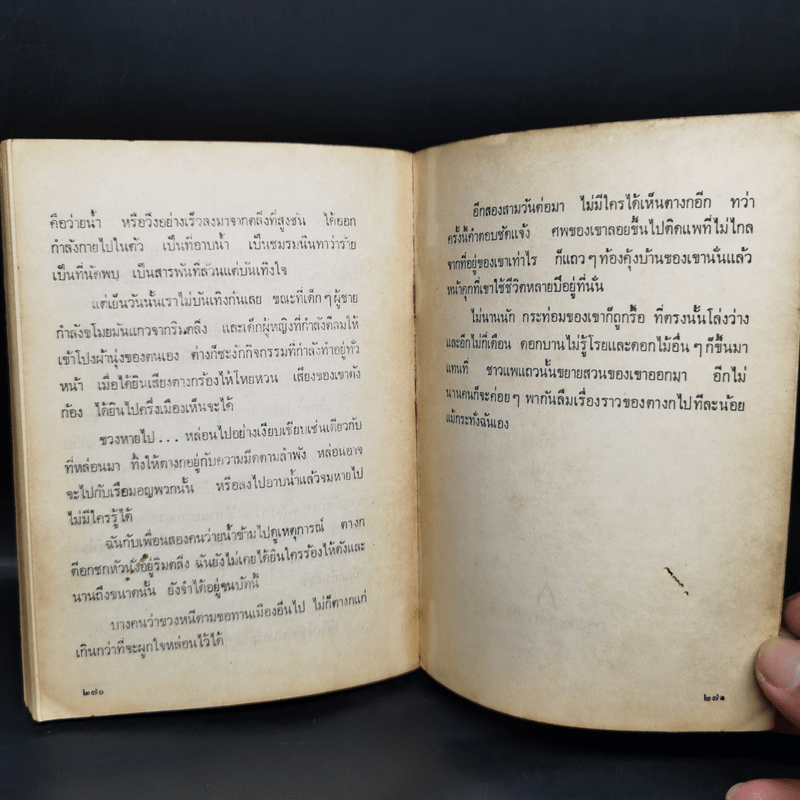 คือว่ายน้ำ หรือวิ่งอย่างเร็วลงมาจากตลิ่งที่สูงชัน ได้ออก
กำลังกายไปในตัว เป็นที่อาบน้ำ เป็นชมรมนินทาว่าร้าย
เป็นที่นัดพบ เป็นสารพันที่ล้วนแต่บันเทิงใจ
แต่เย็นวันนั้นเราไม่บันเทิงกันเลย ขณะที่เด็กๆผู้ชาย
กำลังขโมยมันแกวจากริมตลิ่ง และเด็กผู้หญิงที่กำลังตีลมให้
เข้าโปงผ้านุ่งของตนเอง ต่างก็ชะงักกิจกรรมที่กำลังทำอยู่ทั่ว
หน้า เมื่อได้ยินเสียงตางกร้องไห้โหยหวน เสียงของเขาดัง
ก้อง ได้ยินไปครึ่งเมืองเห็นจะได้
ขวงหายไป ... หล่อนไปอย่างเงียบเชียบเช่นเดียวกับ
ที่หล่อนมา ทิ้งให้ตางกอยู่กับความมืดตามลำพัง หล่อนอาจ
จะไปกับเรือมอญพวกนั้น หรือลงไปอาบน้ำแล้วจมหายไป
ไม่มีใครรู้ได้
ฉันกับเพื่อนสองคนว่ายน้ำข้ามไปดูเหตุการณ์ ตางก
ตีอกชกหัวนั่งอยู่ริมตลิ่ง ฉันยังไม่เคยได้ยินใครร้องไห้ดังและ
นานถึงขนาดนั้น ยังจำได้อยู่จนบัดนี้
บางคนว่าขวงหนีตามขอทานเมืองอื่นไป ไม่ก็ตางกแก่
เกินกว่าที่จะผูกใจหล่อนไว้ได้
๒๗๐
อีกสองสามวันต่อมา ไม่มีใครได้เห็นตางกอีก ทว่า
ครั้งนี้คำตอบชัดแจ้ง ศพของเขาลอยขึ้นไปติดแพที่ไม่ไกล
จากที่อยู่ของเขาเท่าไร ก็แถวๆท้องคุ้งบ้านของเขานั่นแล้ว
หน้าคุกที่เขาใช้ชีวิตหลายปีอยู่ที่นั่น
ไม่นานนัก กระท่อมของเขาก็ถูกรื้อ ที่ตรงนั้นโล่งว่าง
และอีกไม่กี่เดือน ดอกบานไม่รู้โรยและดอกไม้อื่นๆก็ขึ้นมา
แทนที่ ชาวแพแถวนั้นขยายสวนของเขาออกมา อีกไม่
นานคนก็จะค่อยๆ พากันลืมเรื่องราวของตางกไปทีละน้อย
แม้กระทั่งฉันเอง
๒๗๑